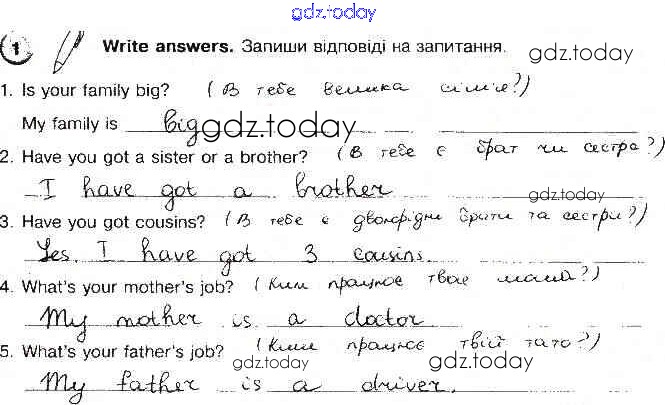 gdz.today
1 Write answers. Запиши відповіді на запитання.
gdz.today
1. Is your family big? (В тебе велика сім'я?)
My family is big
gdz.today
2. Have you got a sister or a brother? (В тебе є брат чи сестра?)
I have got a brother
gdz.today
3. Have you got cousins? (В тебе є двоюрідні брати та сестри?)
Yes. I have got 3 cousins.
4. What's your mother's job? (Ким працює твоя мама?)
My mother is a doctor
5. What's your father's job? (Ким працює твій тато?)
gdz.today gdz.today
My father is a driver.